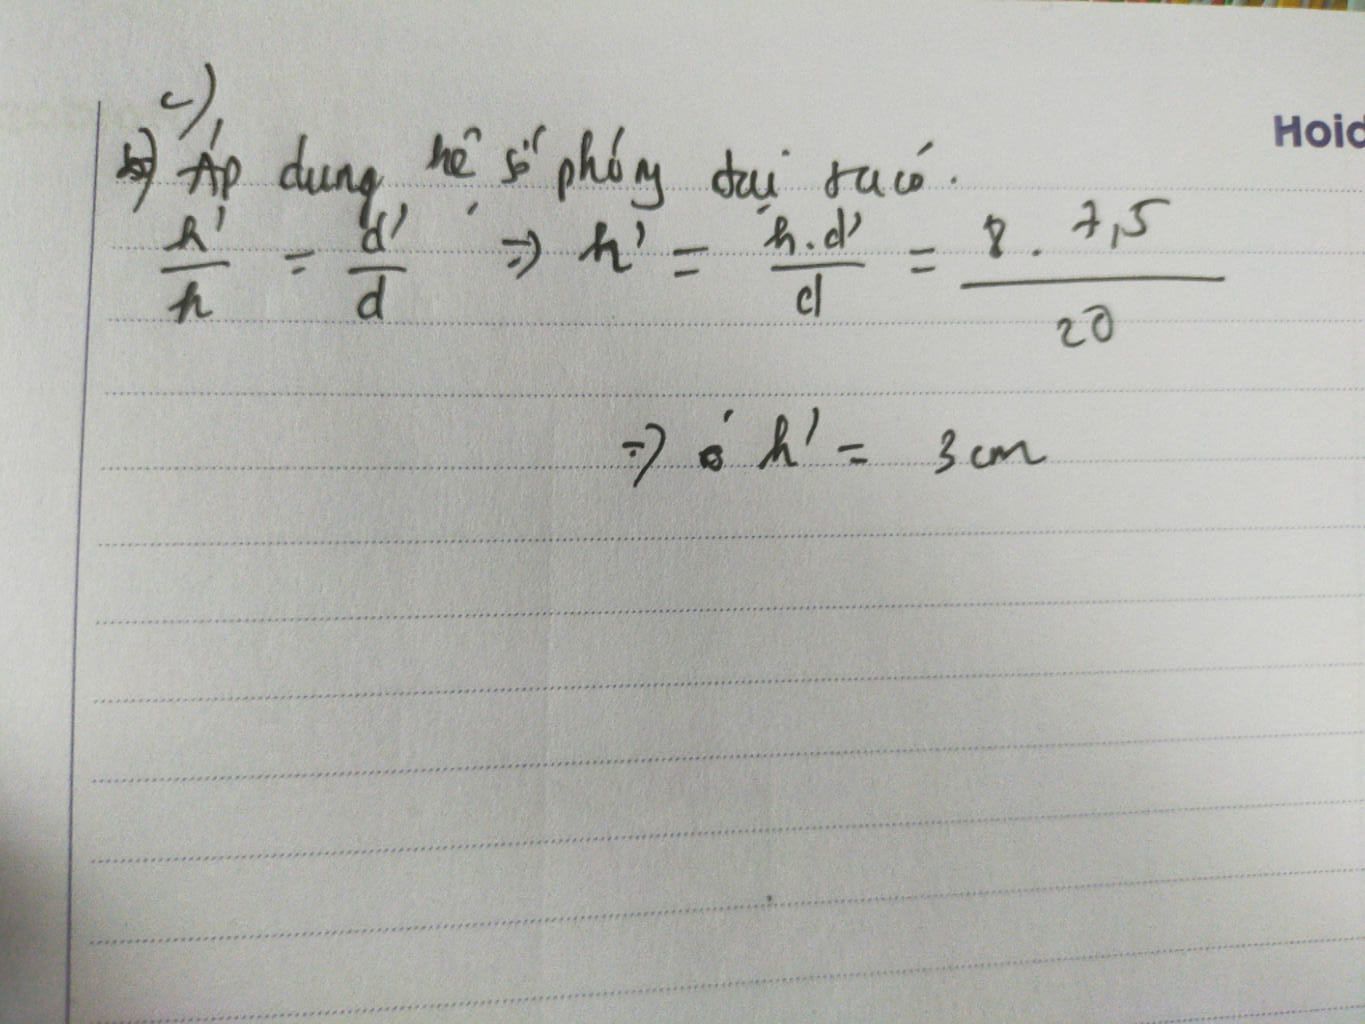 c)
Hoid
b) Áp dụng hệ số phóng đại ta có.
h'/h = d'/d => h' = h.d'/d = 8.7,5/20
=> h' = 3cm